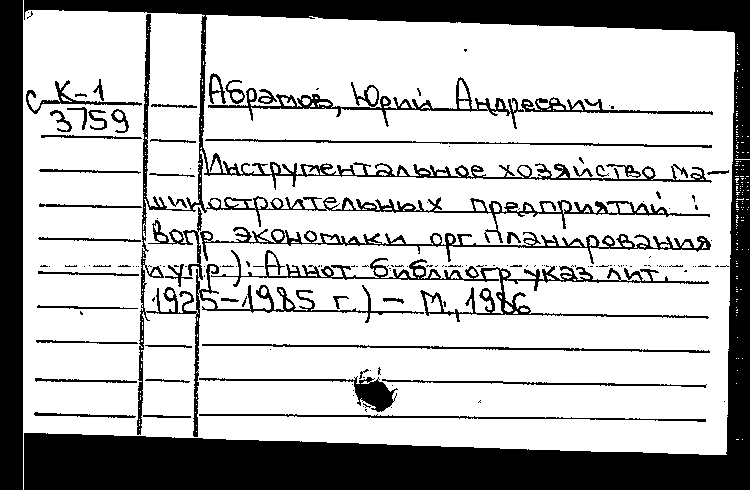 с К-1
3759
Абрамов, Юрий Андреевич.
Инструментальное хозяйство ма-
шиностроительных предприятий :
(Вопр. экономики, орг. планирования
и упр.): Аннот. библиогр. указ. лит.
(1925-1985 г.) - М., 1986